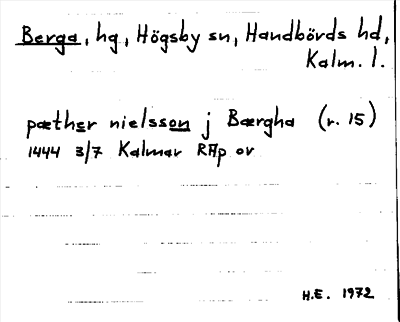 Berga, hg, Högsby sn, Handbörds hd,
Kalm. l.
pæther nielsson j Bærgha (r. 15)
1444 3/7 Kalmar RAp or
H.E. 1972